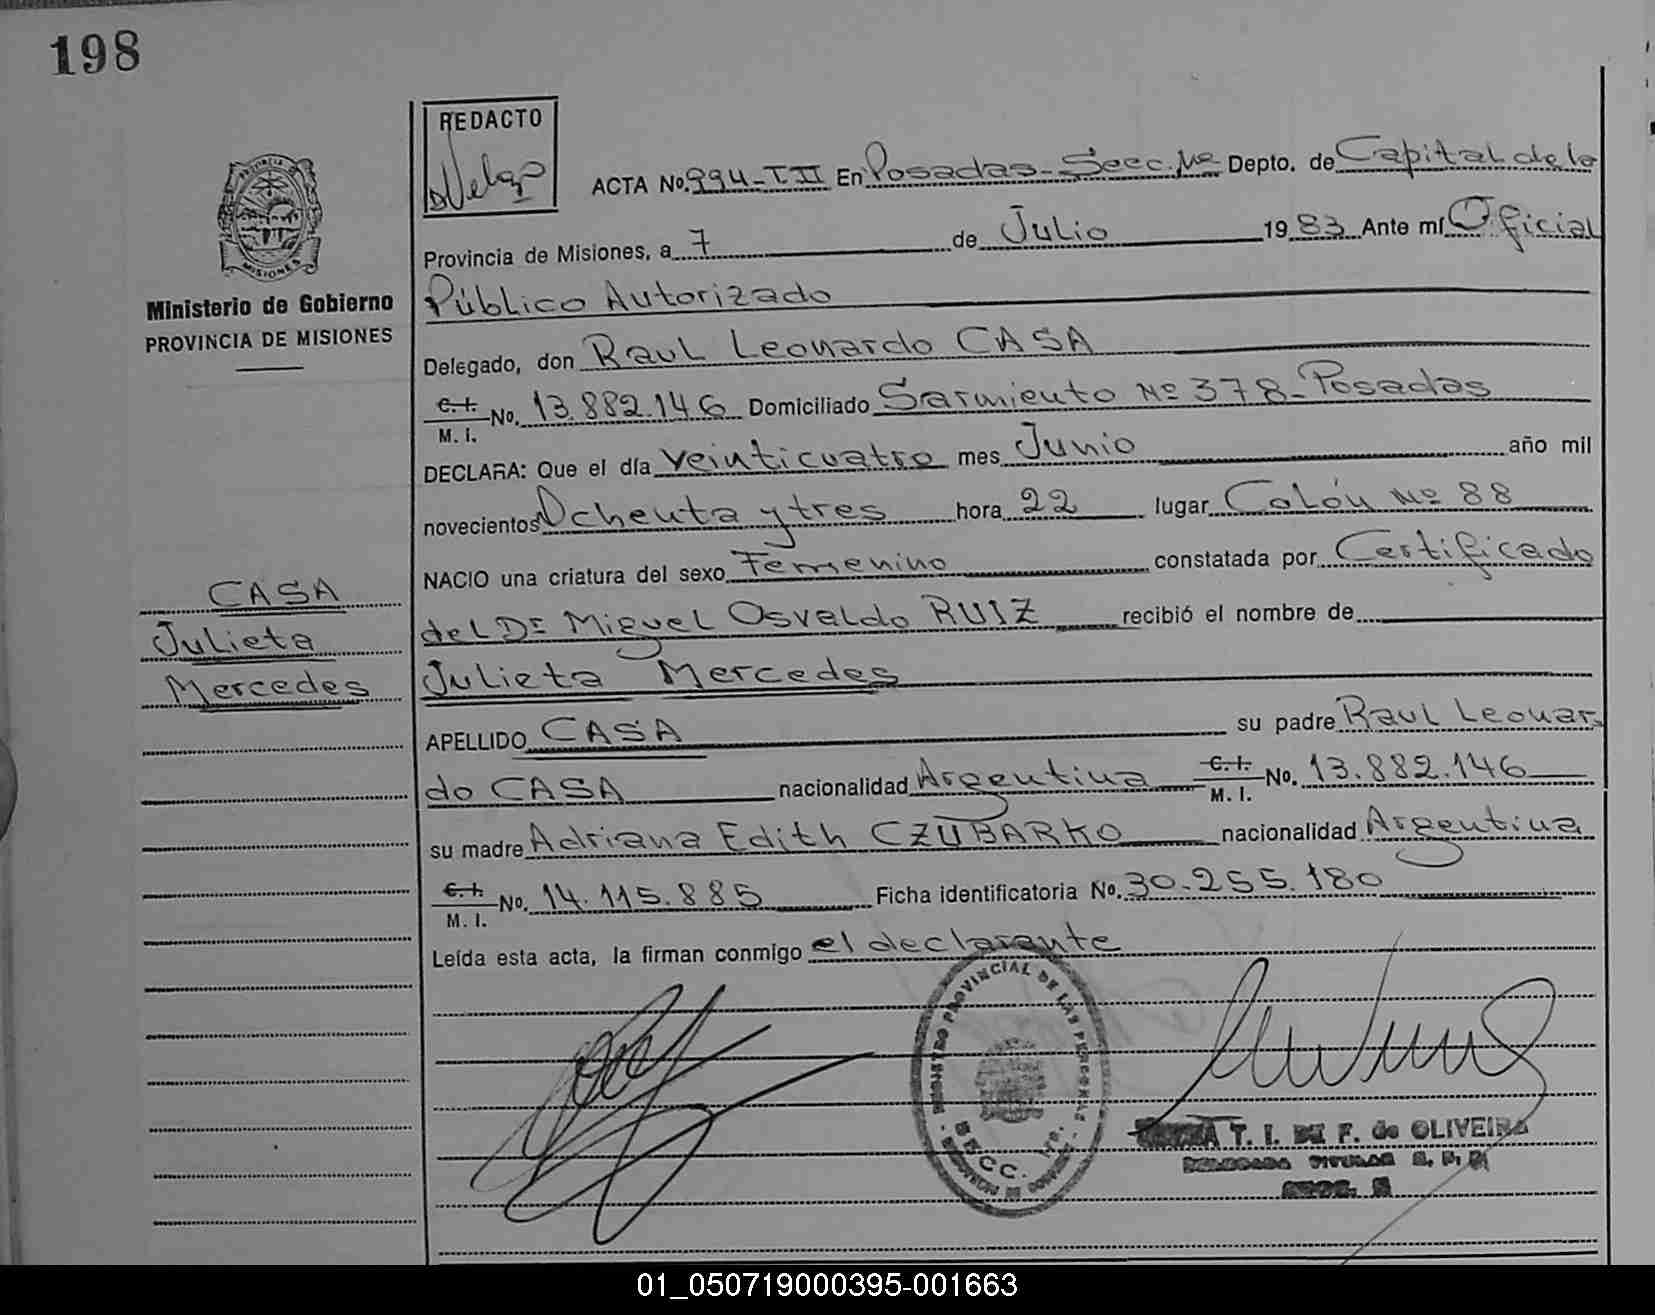 198
REDACTO
ACTA No. 994-TII En Posadas-Secc. Depto. de Capital de la
Provincia de Misiones, a 7 de Julio 1983 Ante mí Oficial
Público Autorizado
Delegado, don Raul Leonardo CASA
C.I. / M. I. No. 13.882.146 Domiciliado Sarmiento Nº 378-Posadas
DECLARA: Que el día veinticuatro mes Junio año mil
novecientos Ochenta y tres hora 22 lugar Colón Nº 88
NACIO una criatura del sexo Femenino constatada por Certificado
del Dr Miguel Osvaldo RUIZ recibió el nombre de
Julieta Mercedes
APELLIDO CASA su padre Raul Leonar
do CASA nacionalidad Argentina C.I. / M. I. No. 13.882.146
su madre Adriana Edith CZUBARKO nacionalidad Argentina
C.I. / M. I. No. 14.115.885 Ficha identificatoria No. 30.255.180
Leída esta acta, la firman conmigo el declarante
PROVINCIA
MISIONES
Ministerio de Gobierno
PROVINCIA DE MISIONES
CASA
Julieta
Mercedes
REGISTRO PROVINCIAL DE LAS PERSONAS
SECC.
T. I. DE F. de OLIVEIRA
DELEGADA TITULAR
SECC.
01_050719000395-001663